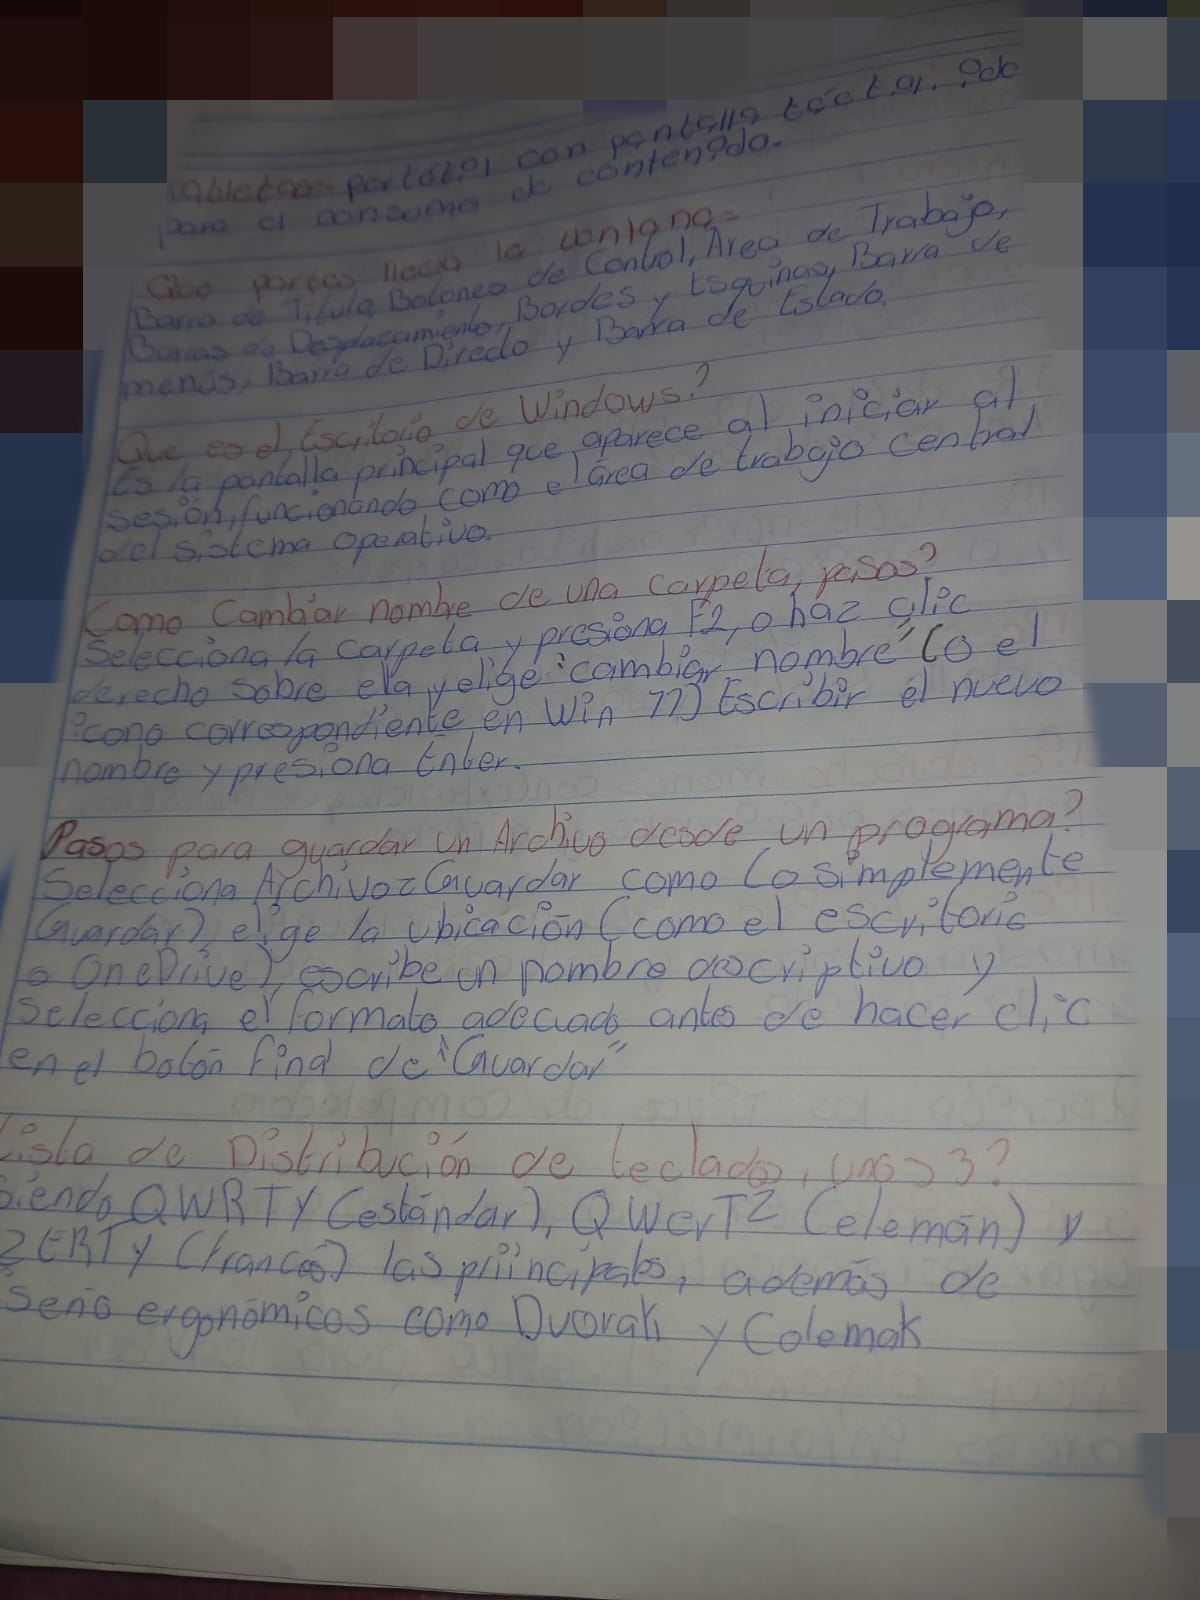 tabletas= portátil con pantalla táctil. ide
para el consumo de contenido.
Que partes lleva la ventana=
Barra de Título, Botones de Control, Área de Trabajo,
Barras de Desplacamiento, Bordes y Esquinas, Barra de
menús, Barra de Direcło y Barra de Estado.
Que es el Escritorio de Windows?
Es la pantalla principal que aparece al iniciar al
sesión, funcionando como el área de trabajo central
del sistema operativo.
Como Cambiar nombre de una carpeta, pasos?
Selecciona la carpeta y presiona F2, o haz clic
derecho sobre ela y elige "cambiar nombre" (o el
icono correspondiente en Win 11) Escribir el nuevo
nombre y presiona Enter.
Pasos para guardar un Archivo desde un programa?
Selecciona Archivo= Guardar como (o simplemente
Guardar), elige la ubicación (como el escritorio
o OneDrive), escribe un nombre descriptivo y
Selecciona el formato adecuado antes de hacer clic
en el botón final de "Guardar"
Lista de Distribución de teclados, unos 3?
Siendo QWRTY (estándar), QWerTZ (elemán) y
ZERTY (francés) las priincipales, además de
seño ergonómicos como Dvorak y Colemak